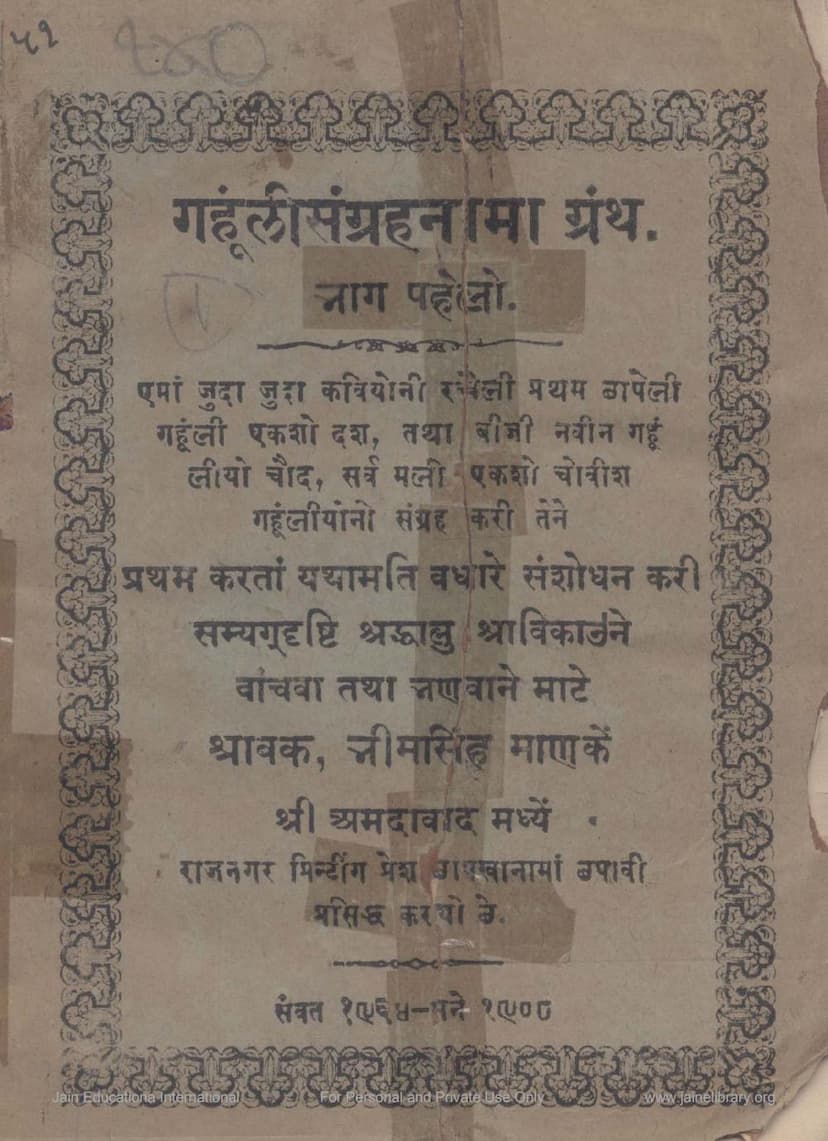 ५१
१४०
गहूंलीसंग्रहनामा ग्रंथ.
भाग पहेलो.
१
एमां जुदा जुदा कवियोनी रचेली प्रथम छापेली
गहूंली एकशो दश, तथा बीजी नवीन गहूं
लीयो चौद, सर्व मली एकशो चोवीश
गहूंलीयोनो संग्रह करी तेने
प्रथम करतां यथामति वधारे संशोधन करी
सम्यग्दृष्टि श्रद्धालु श्राविकाउने
वांचवा तथा भणवाने माटे
श्रावक, भीमसिंह माणकें
श्री अमदावाद मध्यें
राजनगर प्रिन्टींग प्रेश छापखानामां छपावी
प्रसिद्ध करयो छे.
संवत १९६४-सने १९०८
Jain Educationa International For Personal and Private Use Only www.jainelibrary.org